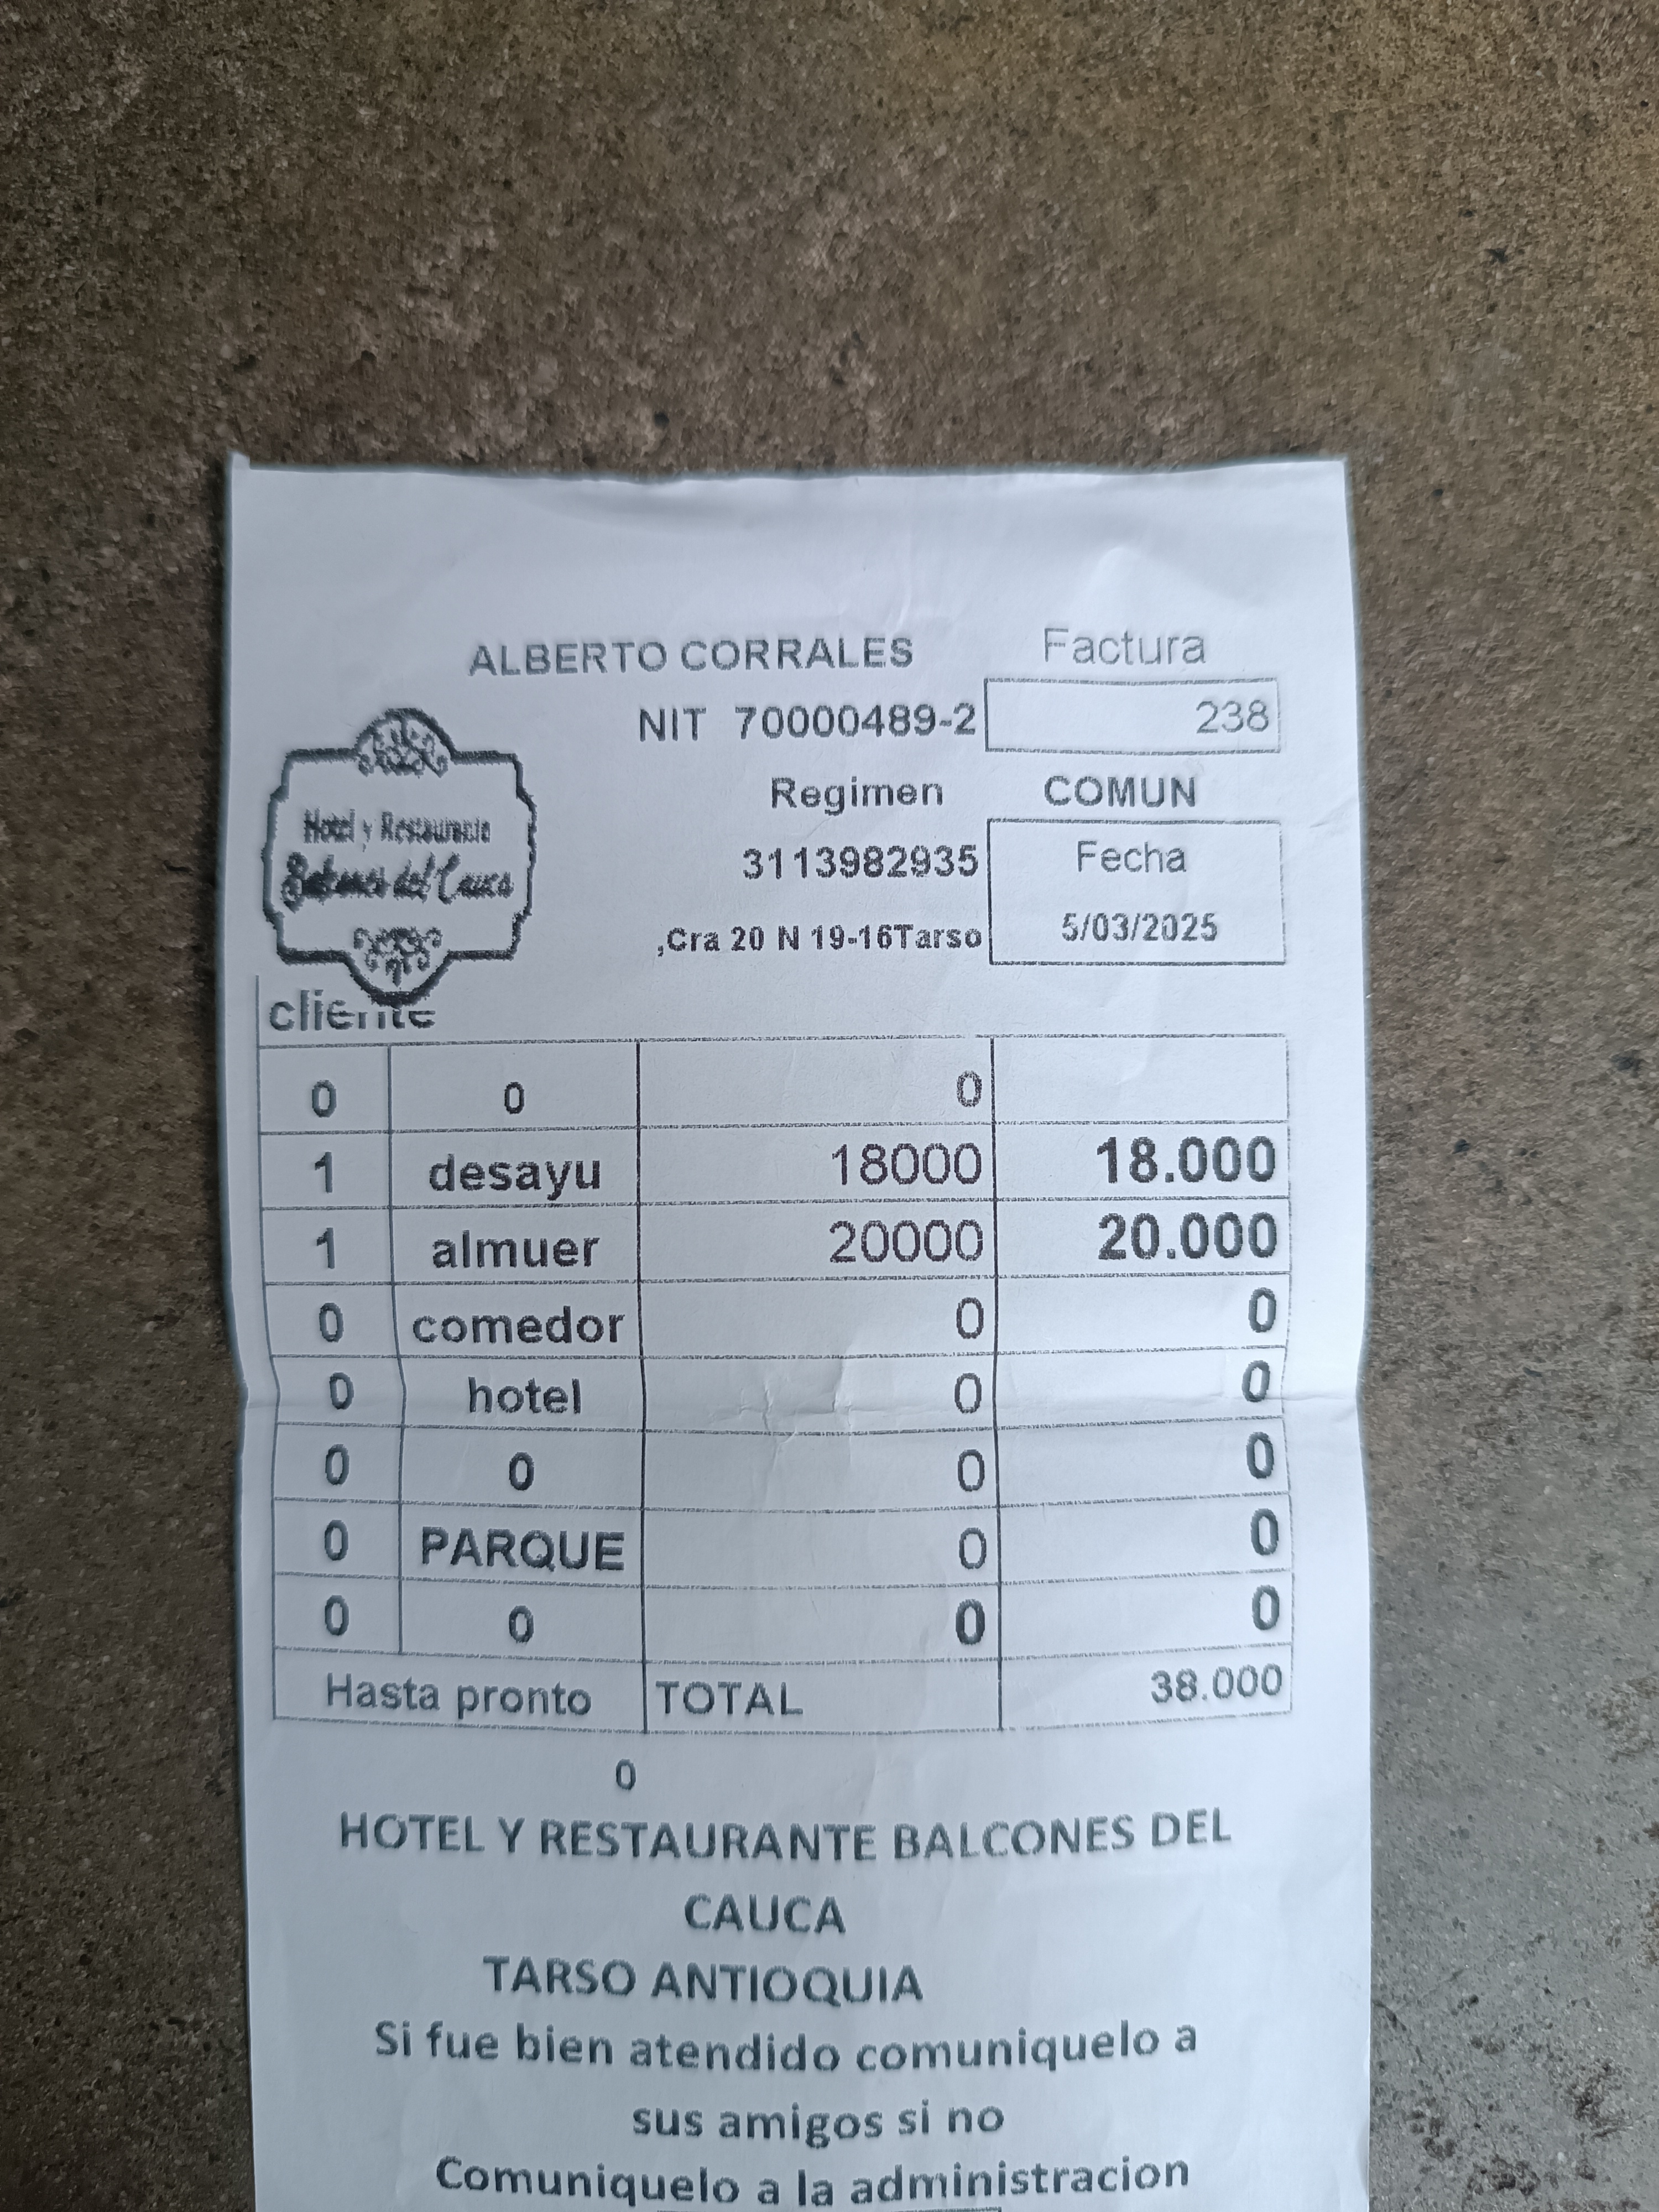 ALBERTO CORRALES Factura
NIT 70000489-2 238
Regimen COMUN
Hotel y Restaurante
Balcones del Cauca
3113982935 Fecha
,Cra 20 N 19-16Tarso 5/03/2025
cliente
0 0 0
1 desayu 18000 18.000
1 almuer 20000 20.000
0 comedor 0 0
0 hotel 0 0
0 0 0 0
0 PARQUE 0 0
0 0 0 0
Hasta pronto TOTAL 38.000
0
HOTEL Y RESTAURANTE BALCONES DEL
CAUCA
TARSO ANTIOQUIA
Si fue bien atendido comuniquelo a
sus amigos si no
Comuniquelo a la administracion